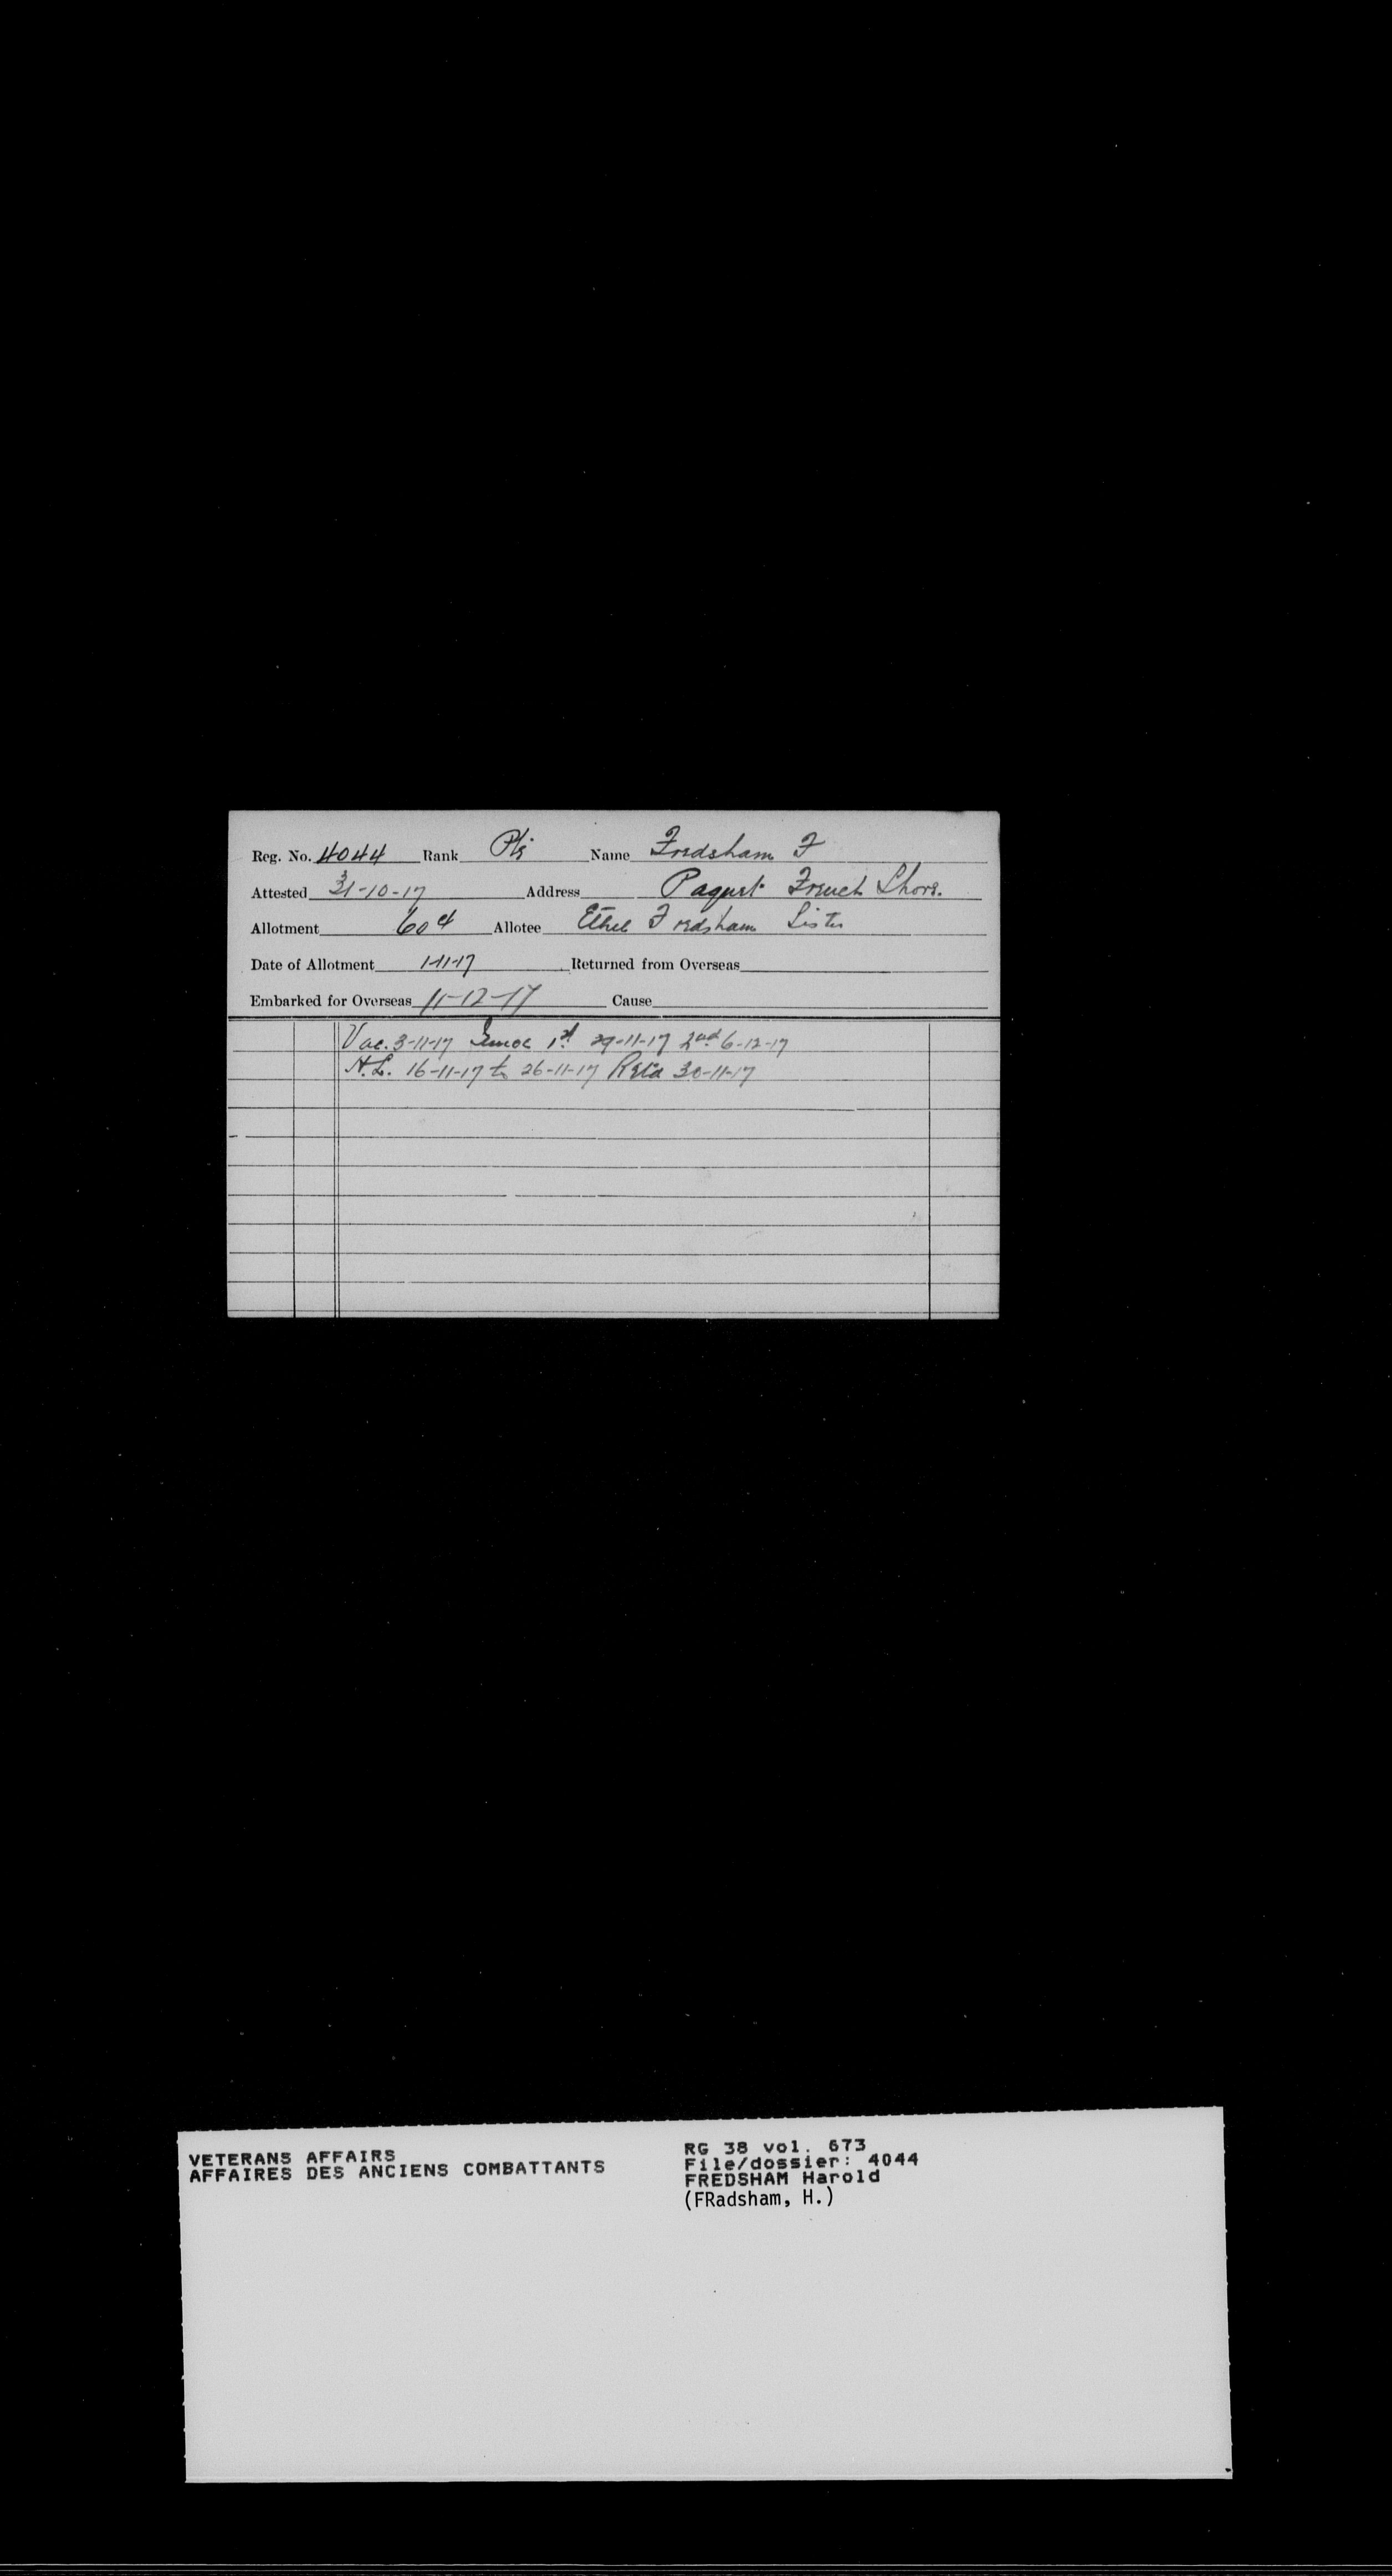 Reg. No. 4044 Rank Pte Name Fredsham F
Attested 31-10-17 Address Paqust French Shore.
Allotment 60¢ Allotee Ethel Fredsham Sister
Date of Allotment 1-11-17 Returned from Overseas
Embarked for Overseas 11-12-17 Cause
Vac. 3-11-17 1st 29-11-17 2nd 6-12-17
H.L. 16-11-17 to 26-11-17 30-11-17
VETERANS AFFAIRS
AFFAIRES DES ANCIENS COMBATTANTS
RG 38 vol. 673
File/dossier: 4044
FREDSHAM Harold
(FRadsham, H.)